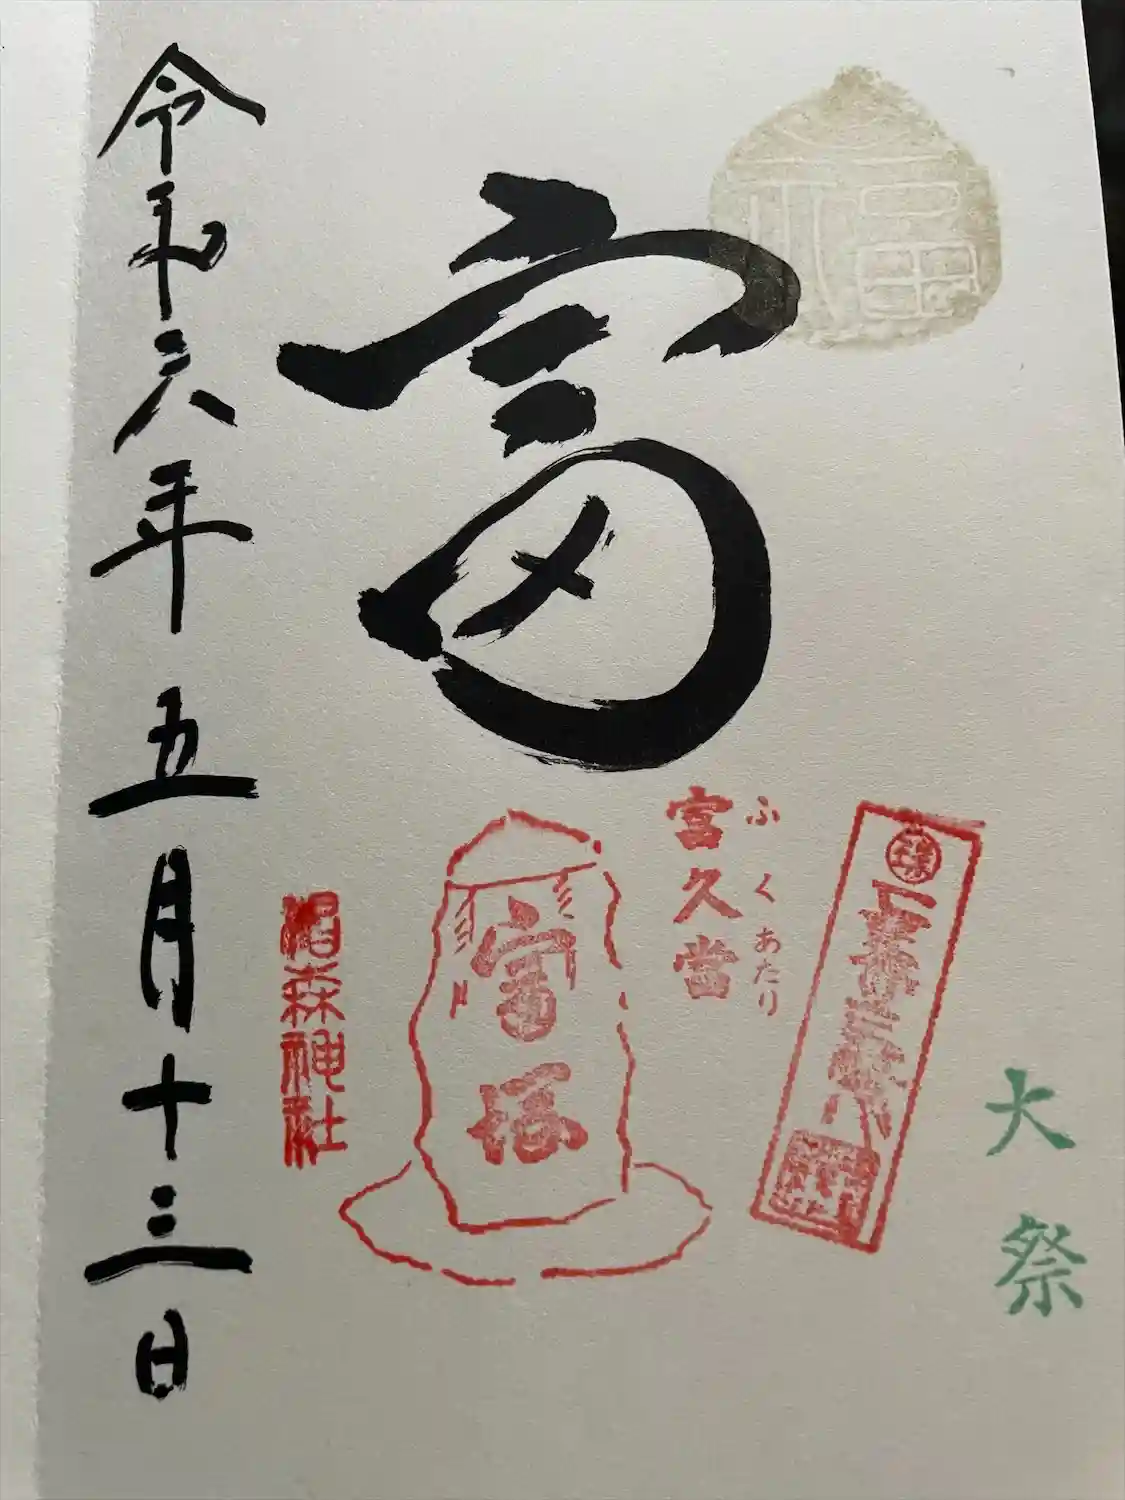 大祭
福
富
富久當
ふくあたり
富塚
椙森神社
令和六年五月十三日